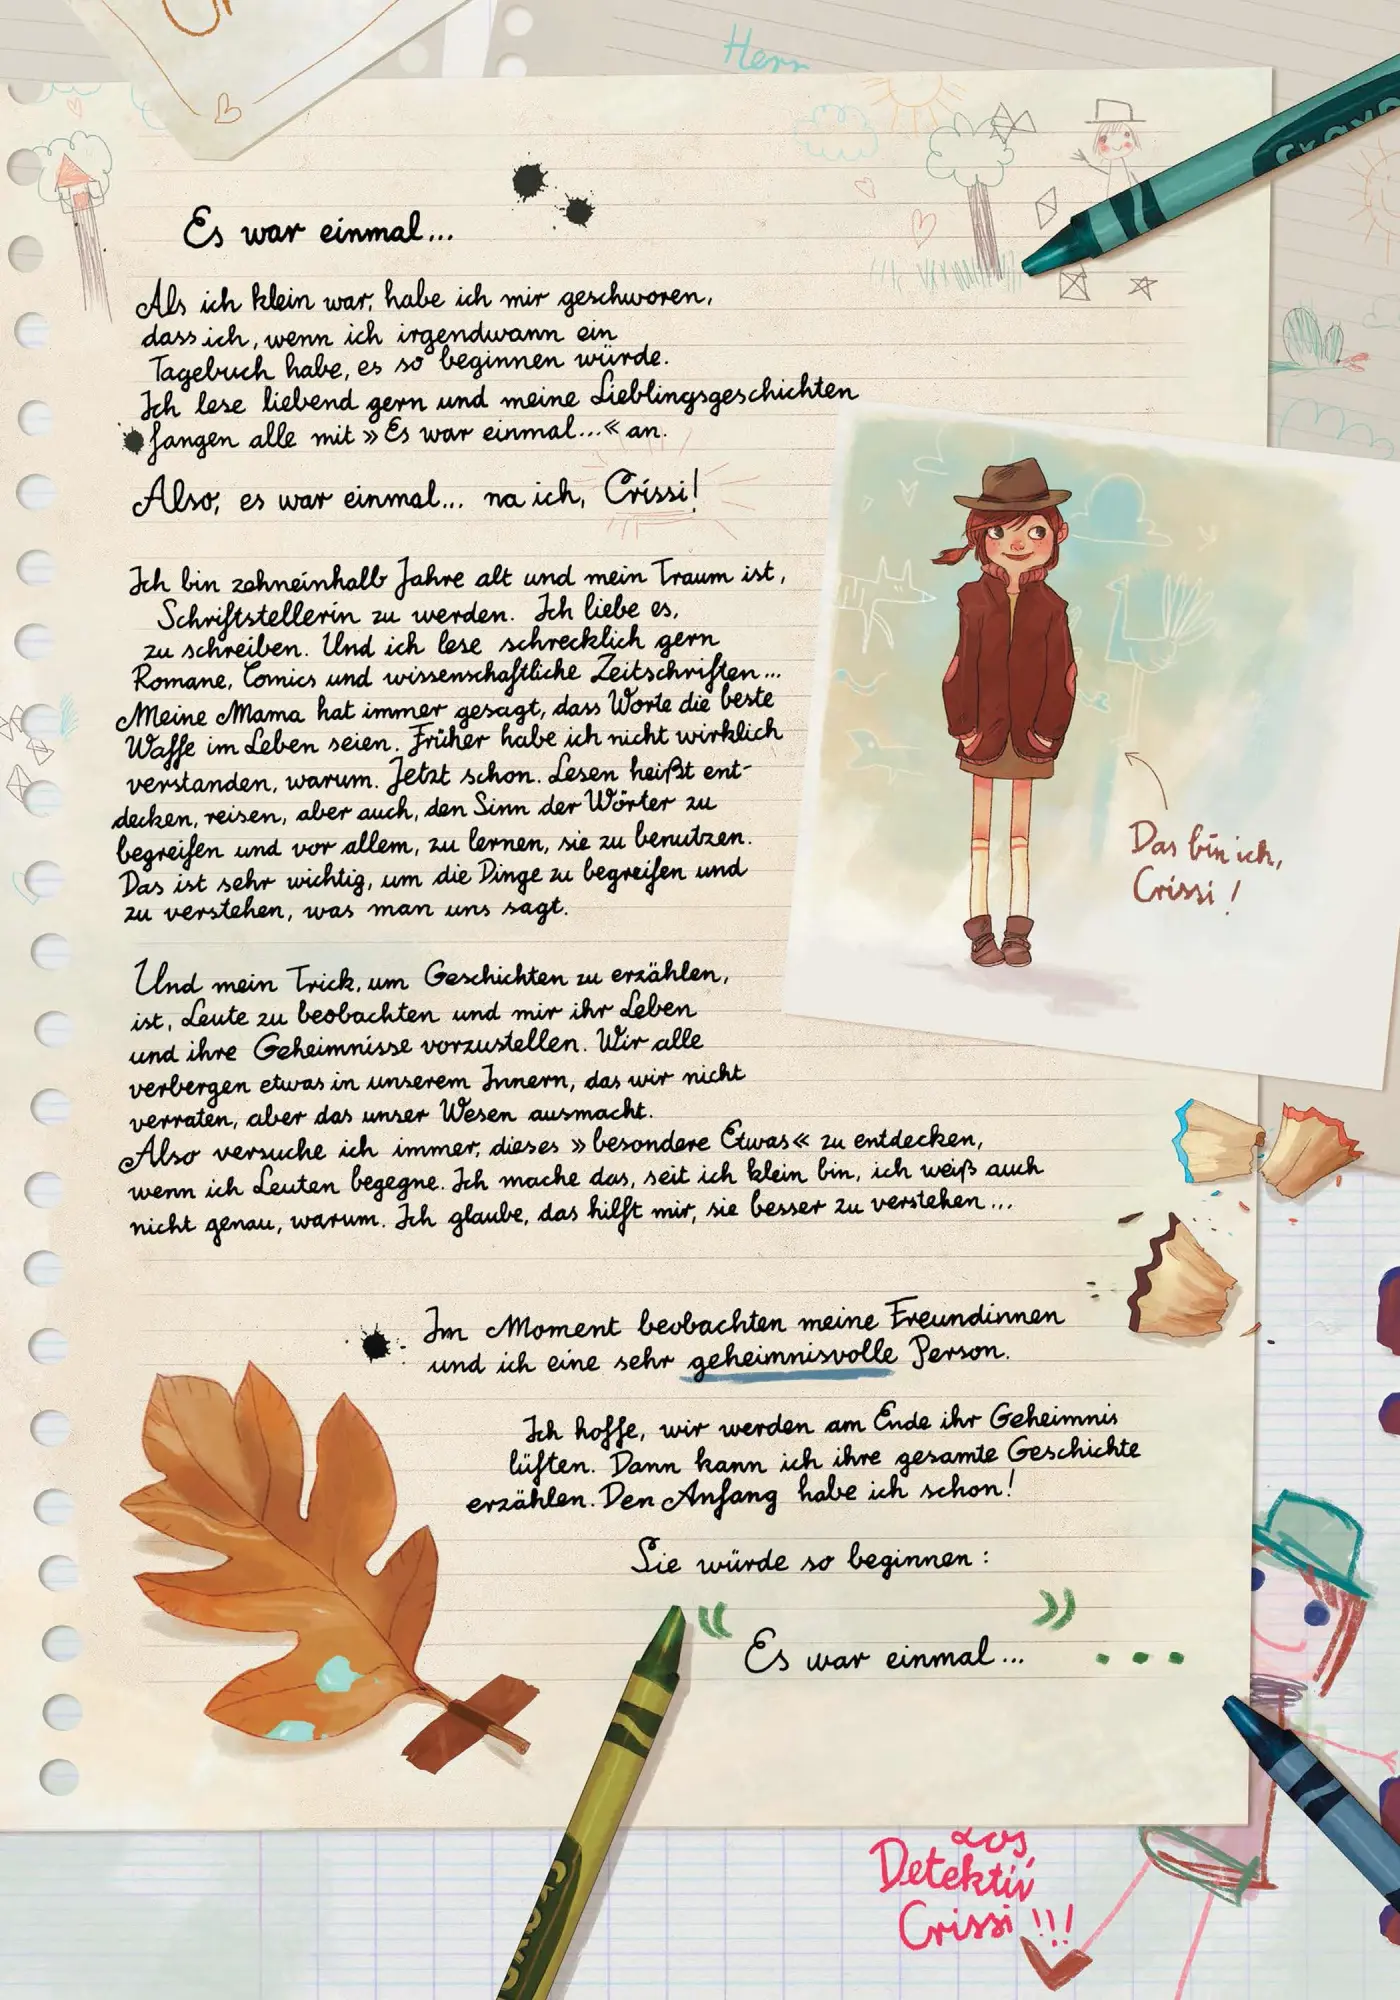 Herr
Es war einmal...
Als ich klein war, habe ich mir geschworen,
dass ich, wenn ich irgendwann ein
Tagebuch habe, es so beginnen würde.
Ich lese liebend gern und meine Lieblingsgeschichten
fangen alle mit »Es war einmal...« an.
Also, es war einmal... na ich, Crissi!
Ich bin zehneinhalb Jahre alt und mein Traum ist,
Schriftstellerin zu werden. Ich liebe es,
zu schreiben. Und ich lese schrecklich gern
Romane, Comics und wissenschaftliche Zeitschriften...
Meine Mama hat immer gesagt, dass Worte die beste
Waffe im Leben seien. Früher habe ich nicht wirklich
verstanden, warum. Jetzt schon. Lesen heißt ent-
decken, reisen, aber auch, den Sinn der Wörter zu
begreifen und vor allem, zu lernen, sie zu benutzen.
Das ist sehr wichtig, um die Dinge zu begreifen und
zu verstehen, was man uns sagt.
Das bin ich,
Crissi!
Und mein Trick, um Geschichten zu erzählen,
ist, Leute zu beobachten und mir ihr Leben
und ihre Geheimnisse vorzustellen. Wir alle
verbergen etwas in unserem Innern, das wir nicht
verraten, aber das unser Wesen ausmacht.
Also versuche ich immer, dieses »besondere Etwas« zu entdecken,
wenn ich Leuten begegne. Ich mache das, seit ich klein bin, ich weiß auch
nicht genau, warum. Ich glaube, das hilft mir, sie besser zu verstehen...
Im Moment beobachten meine Freundinnen
und ich eine sehr geheimnisvolle Person.
Ich hoffe, wir werden am Ende ihr Geheimnis
lüften. Dann kann ich ihre gesamte Geschichte
erzählen. Den Anfang habe ich schon!
Sie würde so beginnen:
« Es war einmal... » ...
Los
Detektiv
Crissi!!!